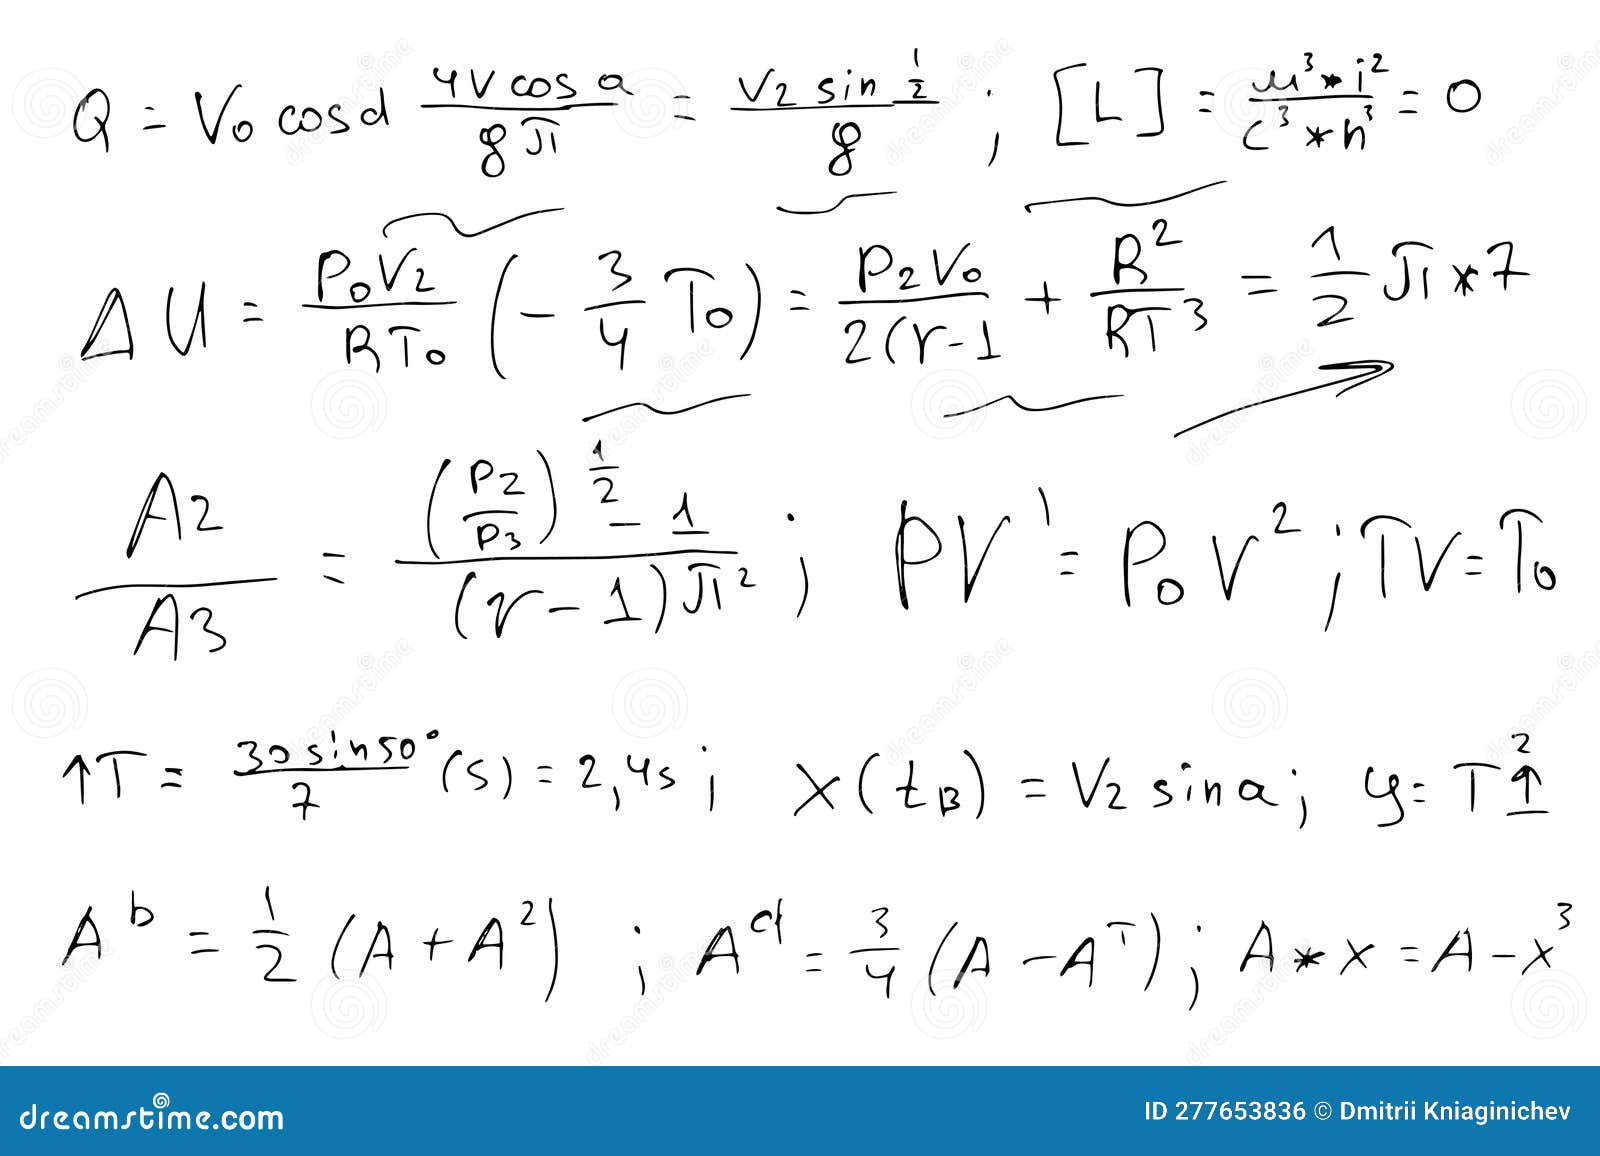 Q = V₀ cosd (4V cos a)/(8π) = (V2 sin 1/2)/8 ; [L] = (м³ * i²)/(c³ * h³) = 0
ΔU = (P₀V2)/(RT₀) (- 3/4 T₀) = (P2V₀)/(2(r-1) + R²/(RT³) = 1/2 π * 7
A2/A3 = ((P2/P3)^(1/2) - 1)/((r-1)π²) ; PV¹ = P₀V² ; TV = T₀
↑T = (30 sin 50°)/7 (S) = 2,4s ; x(t_B) = V2 sin a ; y = T↑²
A^b = 1/2 (A + A²) ; A^d = 3/4 (A - A^T) ; A * x = A - x³
dreamstime.com ID 277653836 © Dmitrii Kniaginichev